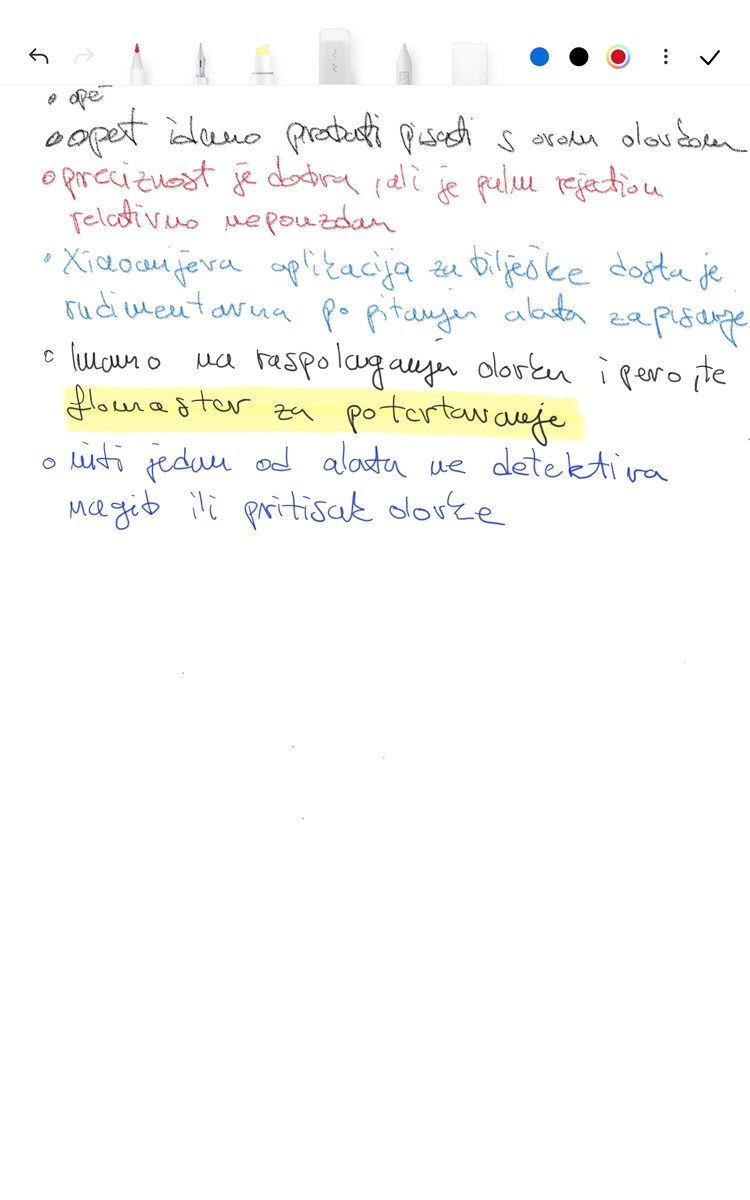 ope
opet idemo probati pisati s ovom olovkom
preciznost je dobra, ali je palm rejection
relativno nepouzdan
Xiaomijeva aplikacija za bilješke dosta je
rudimentarna po pitanju alata za pisanje
Imamo na raspolaganju olovku i pero, te
flomaster za potcrtavanje
niti jedan od alata ne detektira
nagib ili pritisak olovke